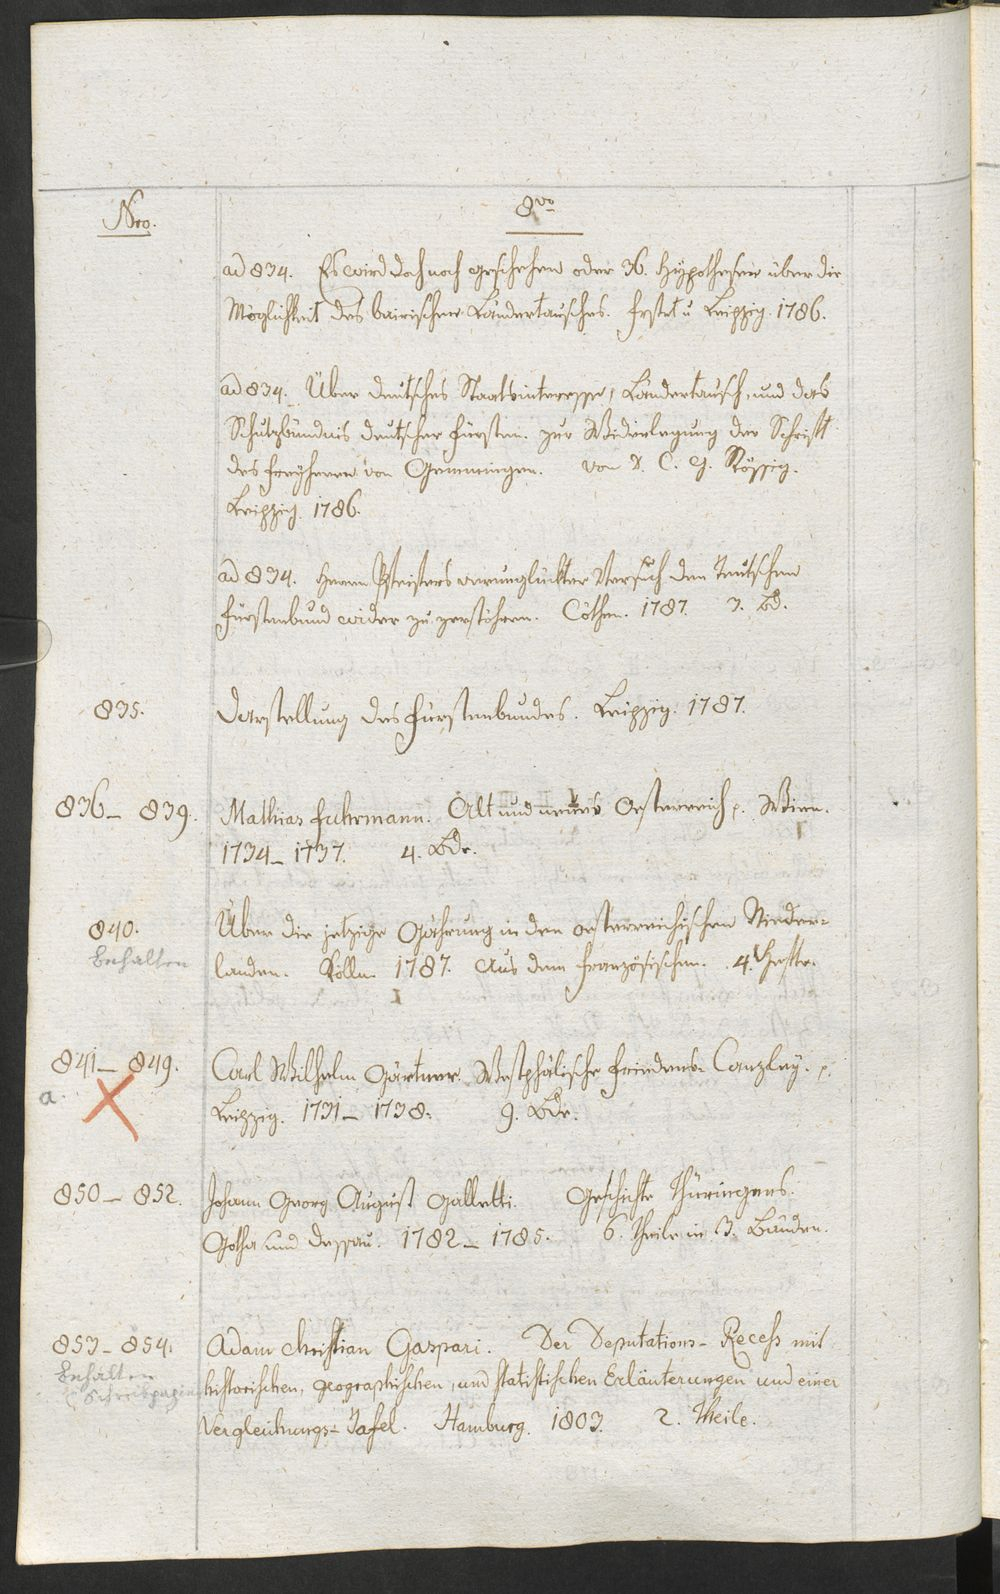 Nro.
8vo
ad 834. Es wird doch noch geschehen oder 36. Hypothesen über die
Möglichkeit des bairischen Ländertausches. Leipzig. 1786.
ad 834. Über deutsches Staatsinteresse, Ländertausch, und das
Schutzbündnis deutscher Fürsten. zur Widerlegung der Schrift
des Freyherrn von Gemmingen. von D. C. G. Rössig.
Leipzig. 1786.
ad 834. Herrn Pfeisters verunglückter Versuch den Teutschen
Fürstenbund wider zu zerstöhren. Cöthen. 1787. 3. Bd.
835.
Darstellung des Fürstenbundes. Leipzig. 1787.
836_ 839.
Mathias Fuhrmann. Alt und neues Oesterreich p. Wien.
1734_ 1737. 4. Bde.
840.
Über die jetzige Gährung in den oesterreichischen Nieder=
behalten
landen. Kölln. 1787. Aus dem Französischen. 4. Hefte.
841_ 849.
Carl Wilhelm Gärtner. Westphälische Friedens= Canzley. p.
a.
Leipzig. 1731_ 1738. 9. Bde.
850_ 852.
Johann Georg August Galletti. Geschichte Thüringens.
Gotha und Dessau. 1782_ 1785. 6. Theile in 3. Bänden.
853_ 854.
Adam Christian Gaspari. Der Deputations= Recess mit
behalten
historischen, geographischen, und statistischen Erläuterungen und einer
Schreibpapier
Vergleichungs= Tafel. Hamburg. 1803. 2. Theile.